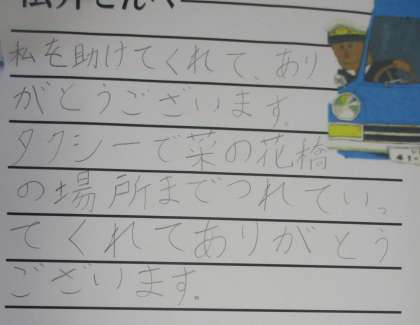 私を助けてくれて、あり
がとうございます。
タクシーで菜の花橋
の場所までつれていっ
てくれてありがとう
ございます。